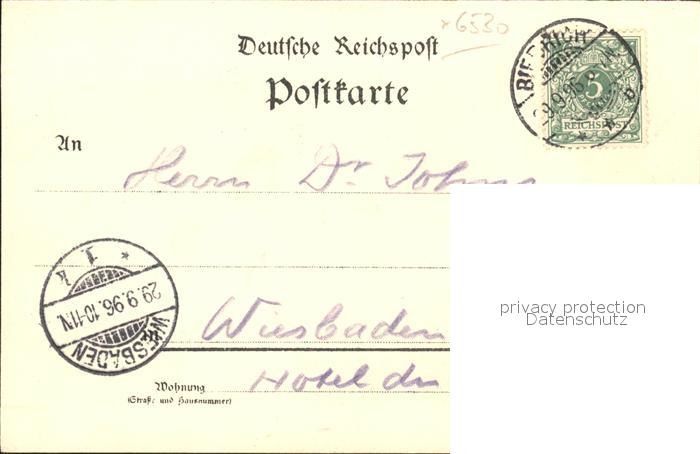 ×6530
Deutsche Reichspost
Postkarte
BIEBRICH
29.9.96
5
REICHSPOST
An
Herrn Dr Johns
1.
k
29.9.96.10-11N.
WIESBADEN
Wiesbaden
Hotel du
Wohnung
(Straße und Hausnummer)
privacy protection
Datenschutz